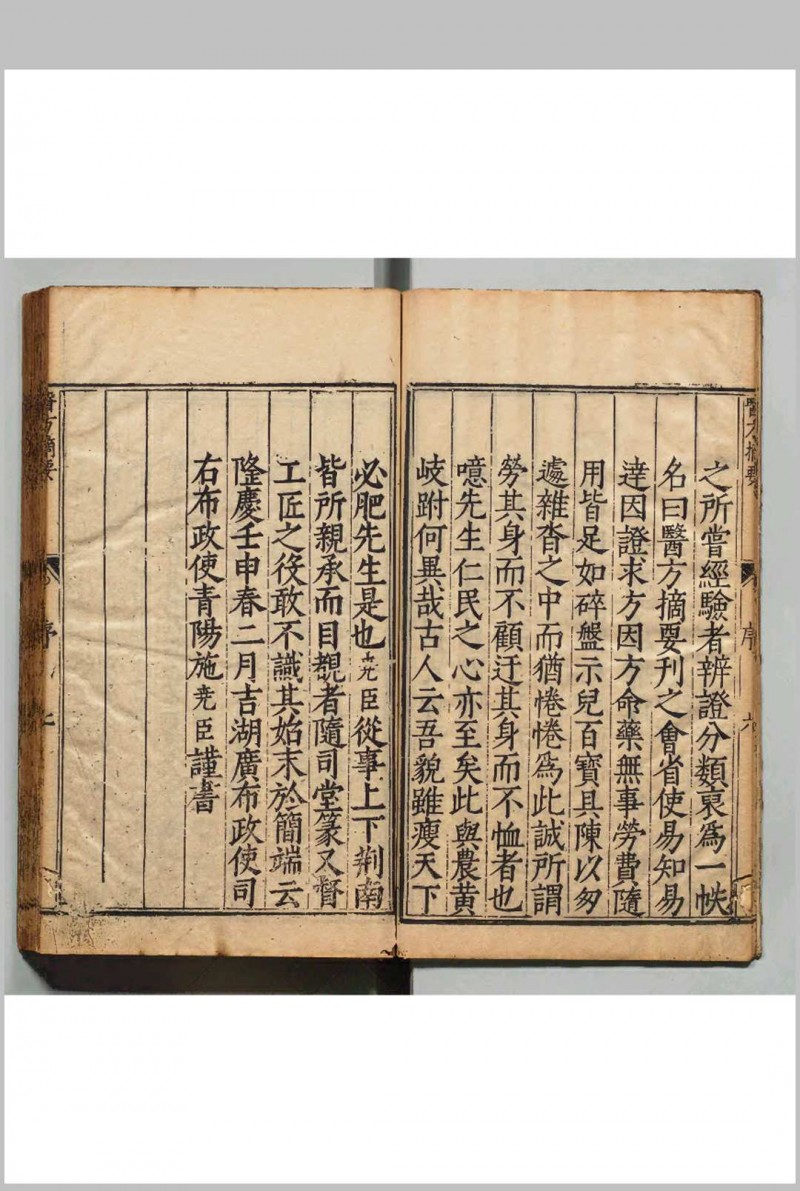 醫方摘要
序
六
之所嘗經驗者辨證分類裒爲一帙
名曰醫方摘要刊之會省使易知易
達因證求方因方命藥無事勞費隨
用皆足如碎盤示兒百寶具陳以匆
遽雜沓之中而猶惓惓爲此誠所謂
勞其身而不顧迂其身而不恤者也
噫先生仁民之心亦至矣此與農黄
岐跗何異哉古人云吾貌雖瘦天下
必肥先生是也堯臣從事上下荆南
皆所親承而目覩者隨司堂篆又督
工匠之役敢不識其始末於簡端云
隆慶壬申春二月吉湖廣布政使司
右布政使青陽施堯臣謹書
醫方摘要
序